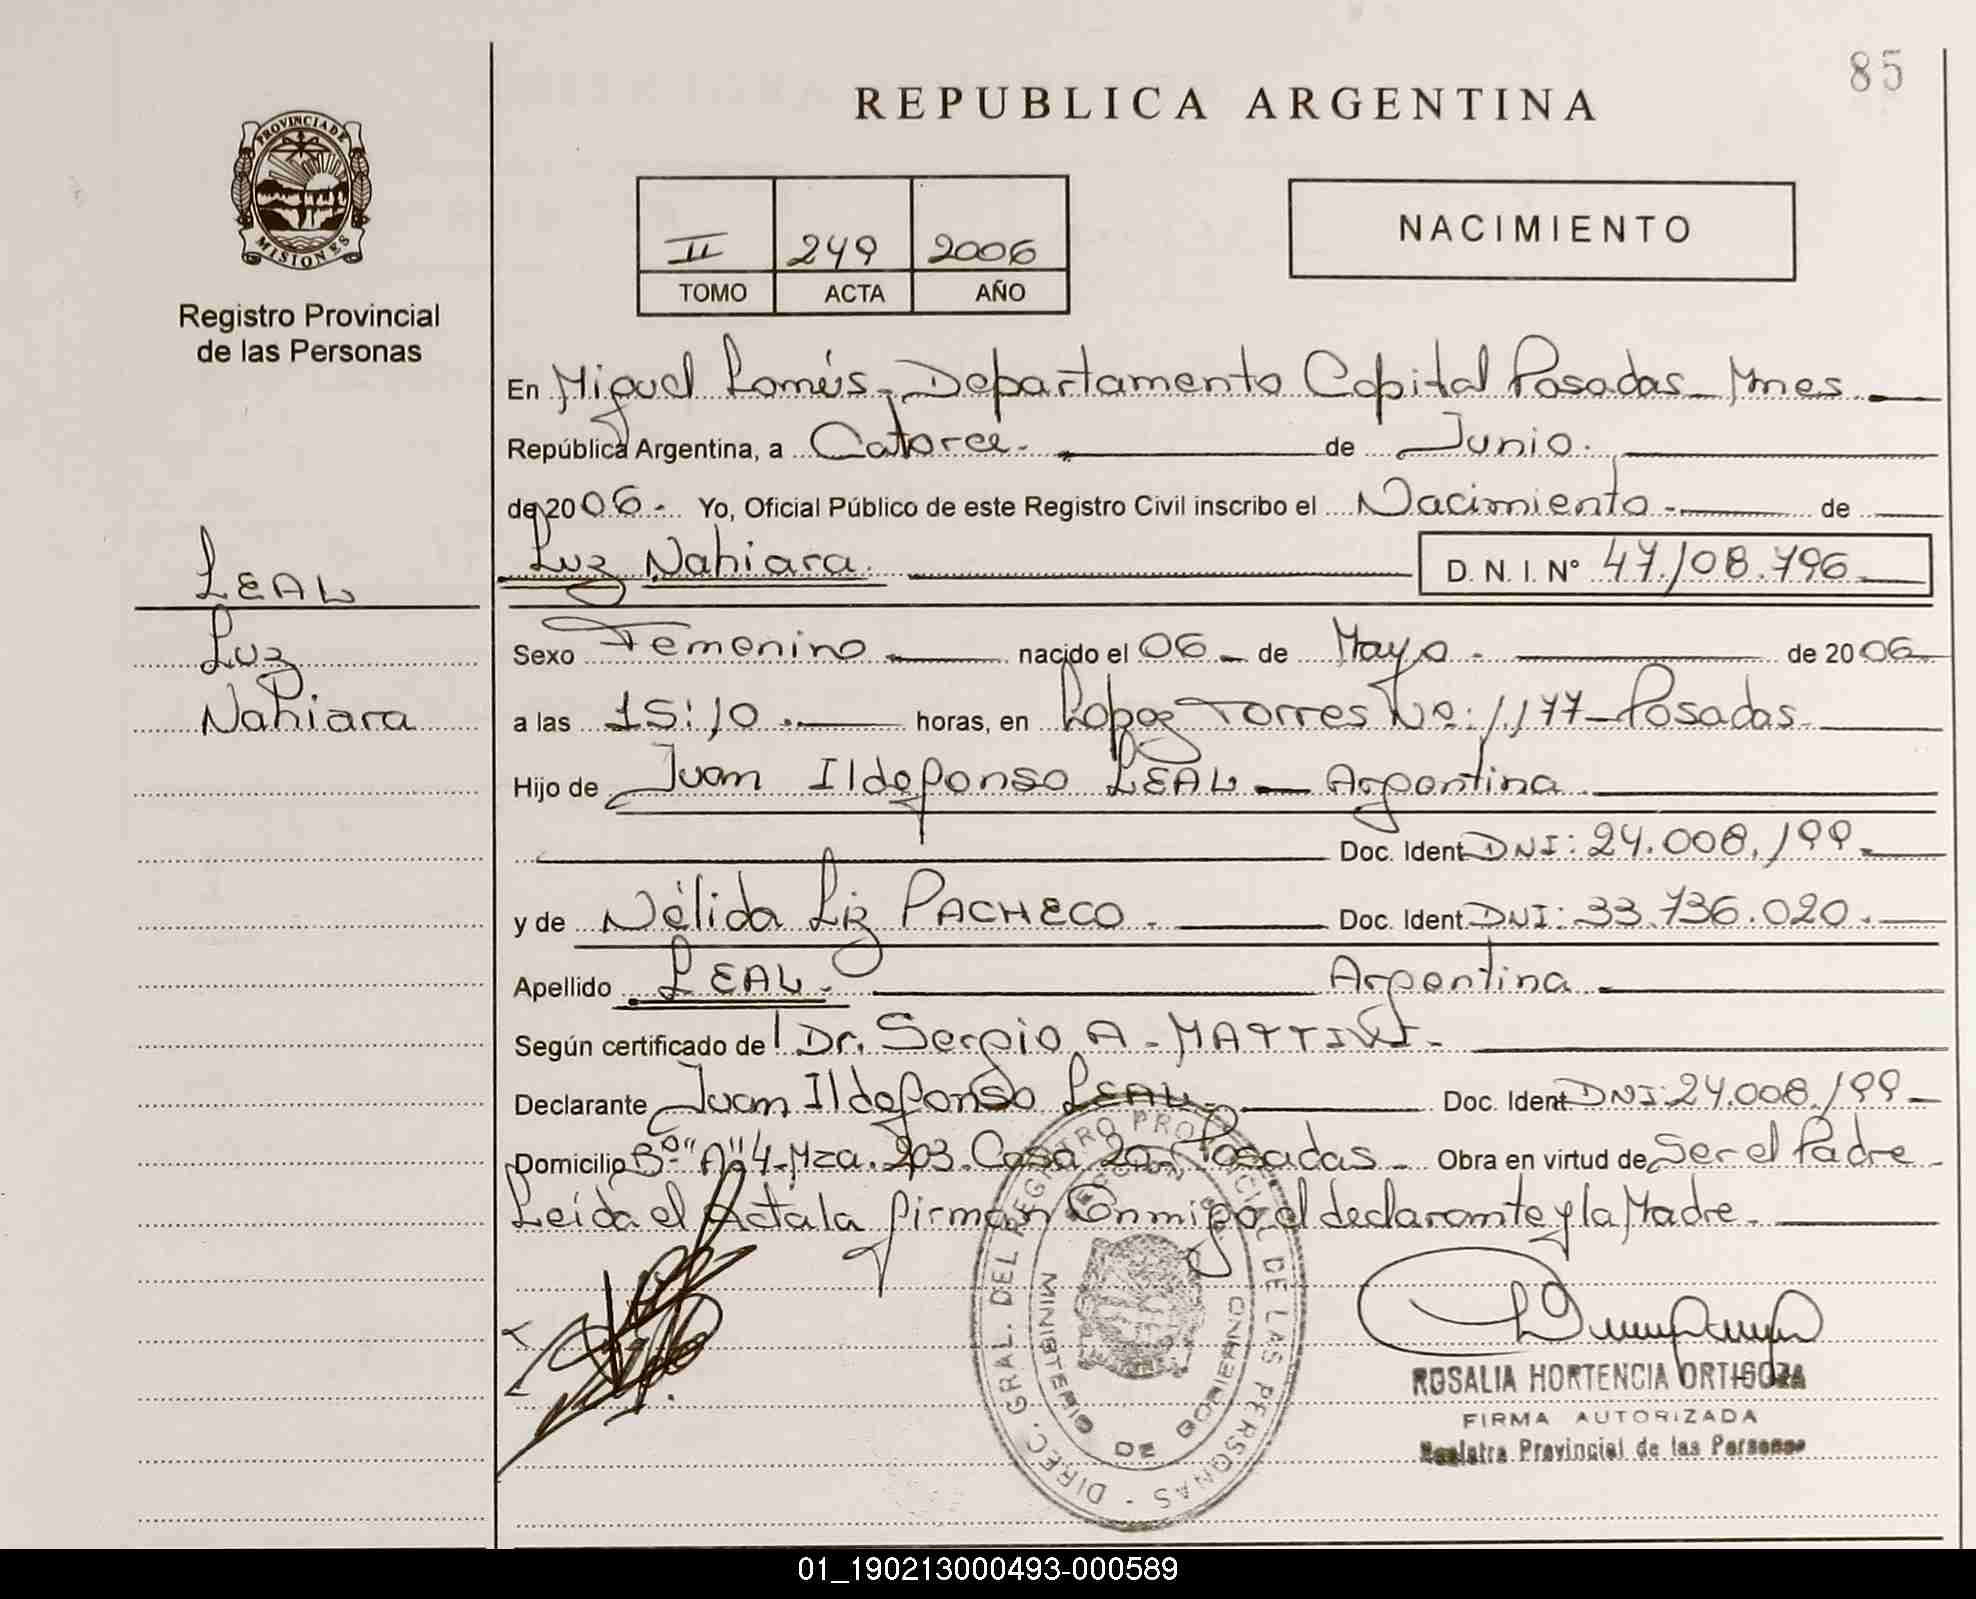 85
REPUBLICA ARGENTINA
PROVINCIA DE
MISIONES
Registro Provincial
de las Personas
II 249 2006
TOMO ACTA AÑO
NACIMIENTO
En Miguel Lanús, Departamento Capital Posadas Mnes
República Argentina, a Catorce de Junio.
de 2006 Yo, Oficial Público de este Registro Civil inscribo el Nacimiento de
LEAL
Luz Nahiara. D. N. I. N° 47.108.796
Luz
Nahiara
Sexo Femenino nacido el 06 de Mayo de 2006
a las 15:10 horas, en Lopez Torres No: 1.177 Posadas
Hijo de Juan Ildefonso LEAL Argentina
Doc. Ident DNI: 24.008.199
y de Nélida Liz PACHECO. Doc. Ident. DNI: 33.736.020.
Apellido LEAL. Argentina
Según certificado de Dr. Sergio A.
Declarante Juan Ildefonso LEAL Doc. Ident DNI: 24.008.199
Domicilio Bº "A" 4 Mza. 203. Casa 20 Posadas Obra en virtud de Ser el Padre
Leída el Acta la firman Conmigo el declarante y la Madre
DIREC. GRAL. DEL REGISTRO PROVINCIAL DE LAS PERSONAS
MINISTERIO DE GOBIERNO
ROSALIA HORTENCIA ORTIGOZA
FIRMA AUTORIZADA
Registro Provincial de las Personas
01_190213000493-000589